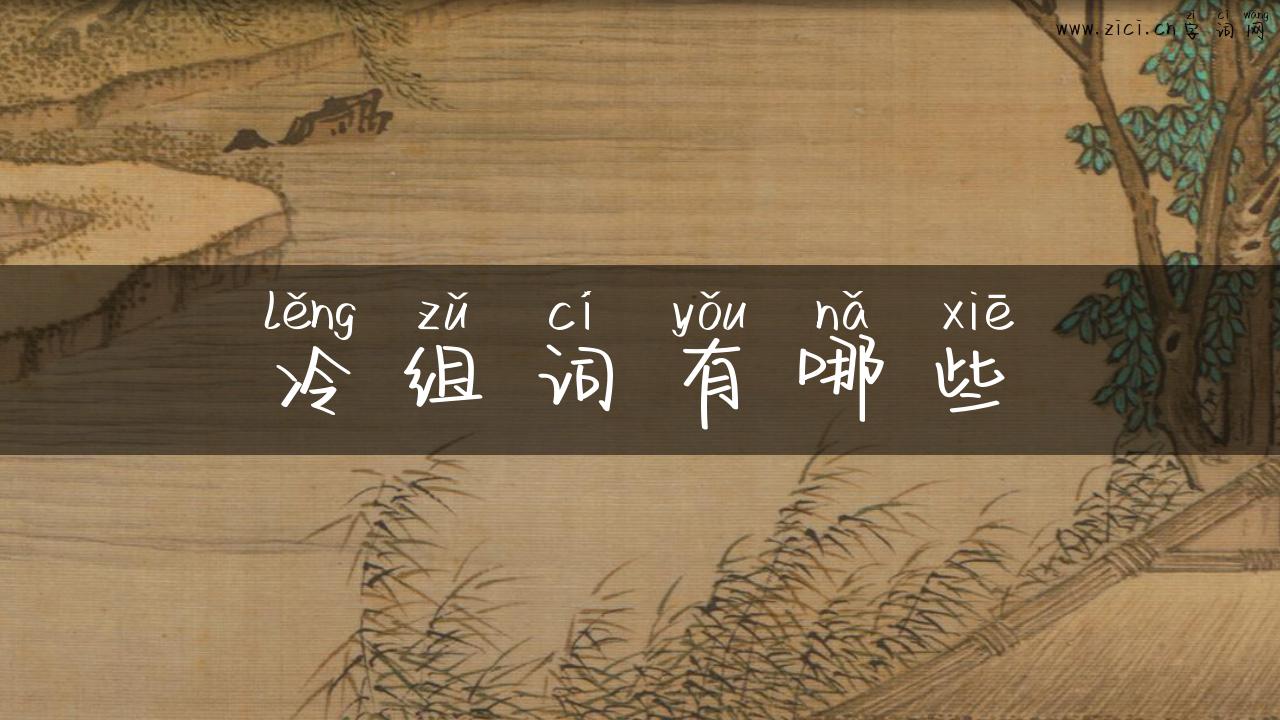 zì cí wǎng
www.zici.cn字词网
lěng zǔ cí yǒu nǎ xiē
冷组词有哪些